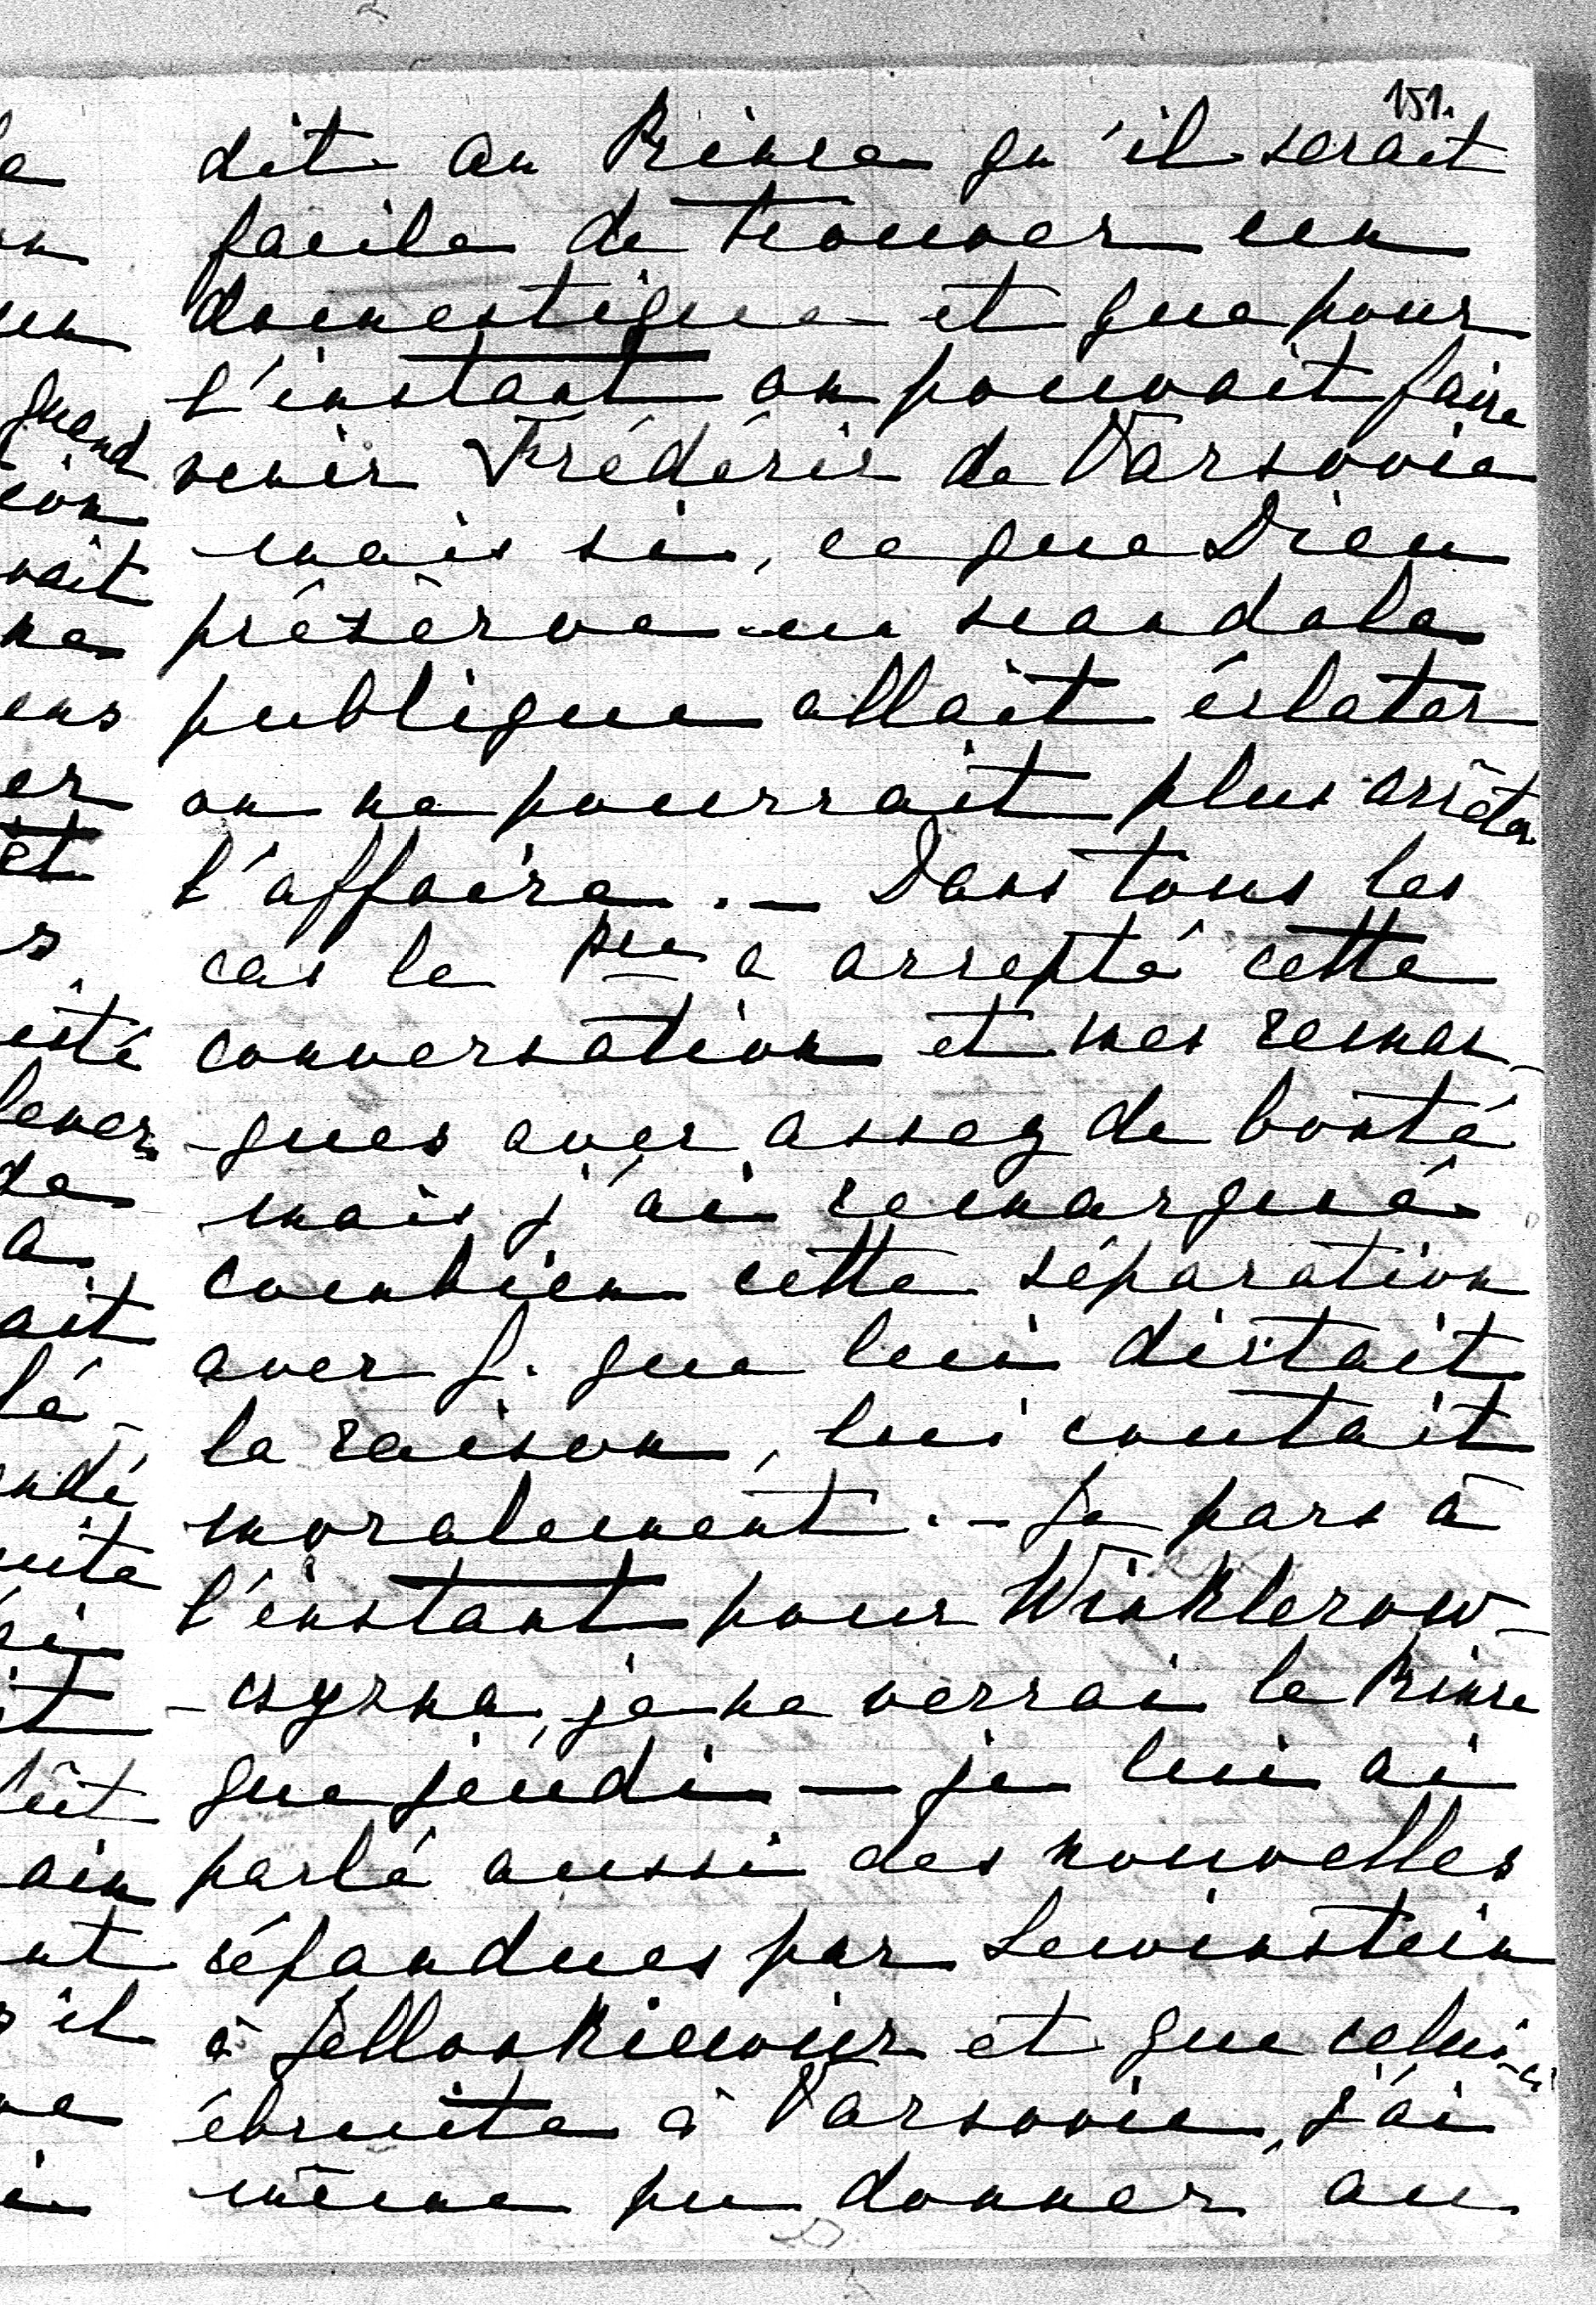 151.
dit au Prince qu'il serait
facile de trouver un
domestique et que pour
l'instant on pouvait faire
venir Frédéric de Varsovie
mais si, ce que Dieu
préserve un scandale
publique allait éclater
on ne pourrait plus arrêter
l'affaire. — Dans tous les
cas le Pce a accepté cette
conversation et mes remar-
-ques avec assez de bonté
mais j'ai remarqué
combien cette séparation
avec J. que lui dictait
la raison, lui coutait
moralement. — Je pars à
l'instant pour Winklerow-
-czyzna, je ne verrai le Prince
que jeudi — je lui ai
parlé aussi des nouvelles
répandues par Lewinstein
à et que celui-ci
ébruite à Varsovie, j'ai
même pu donner au